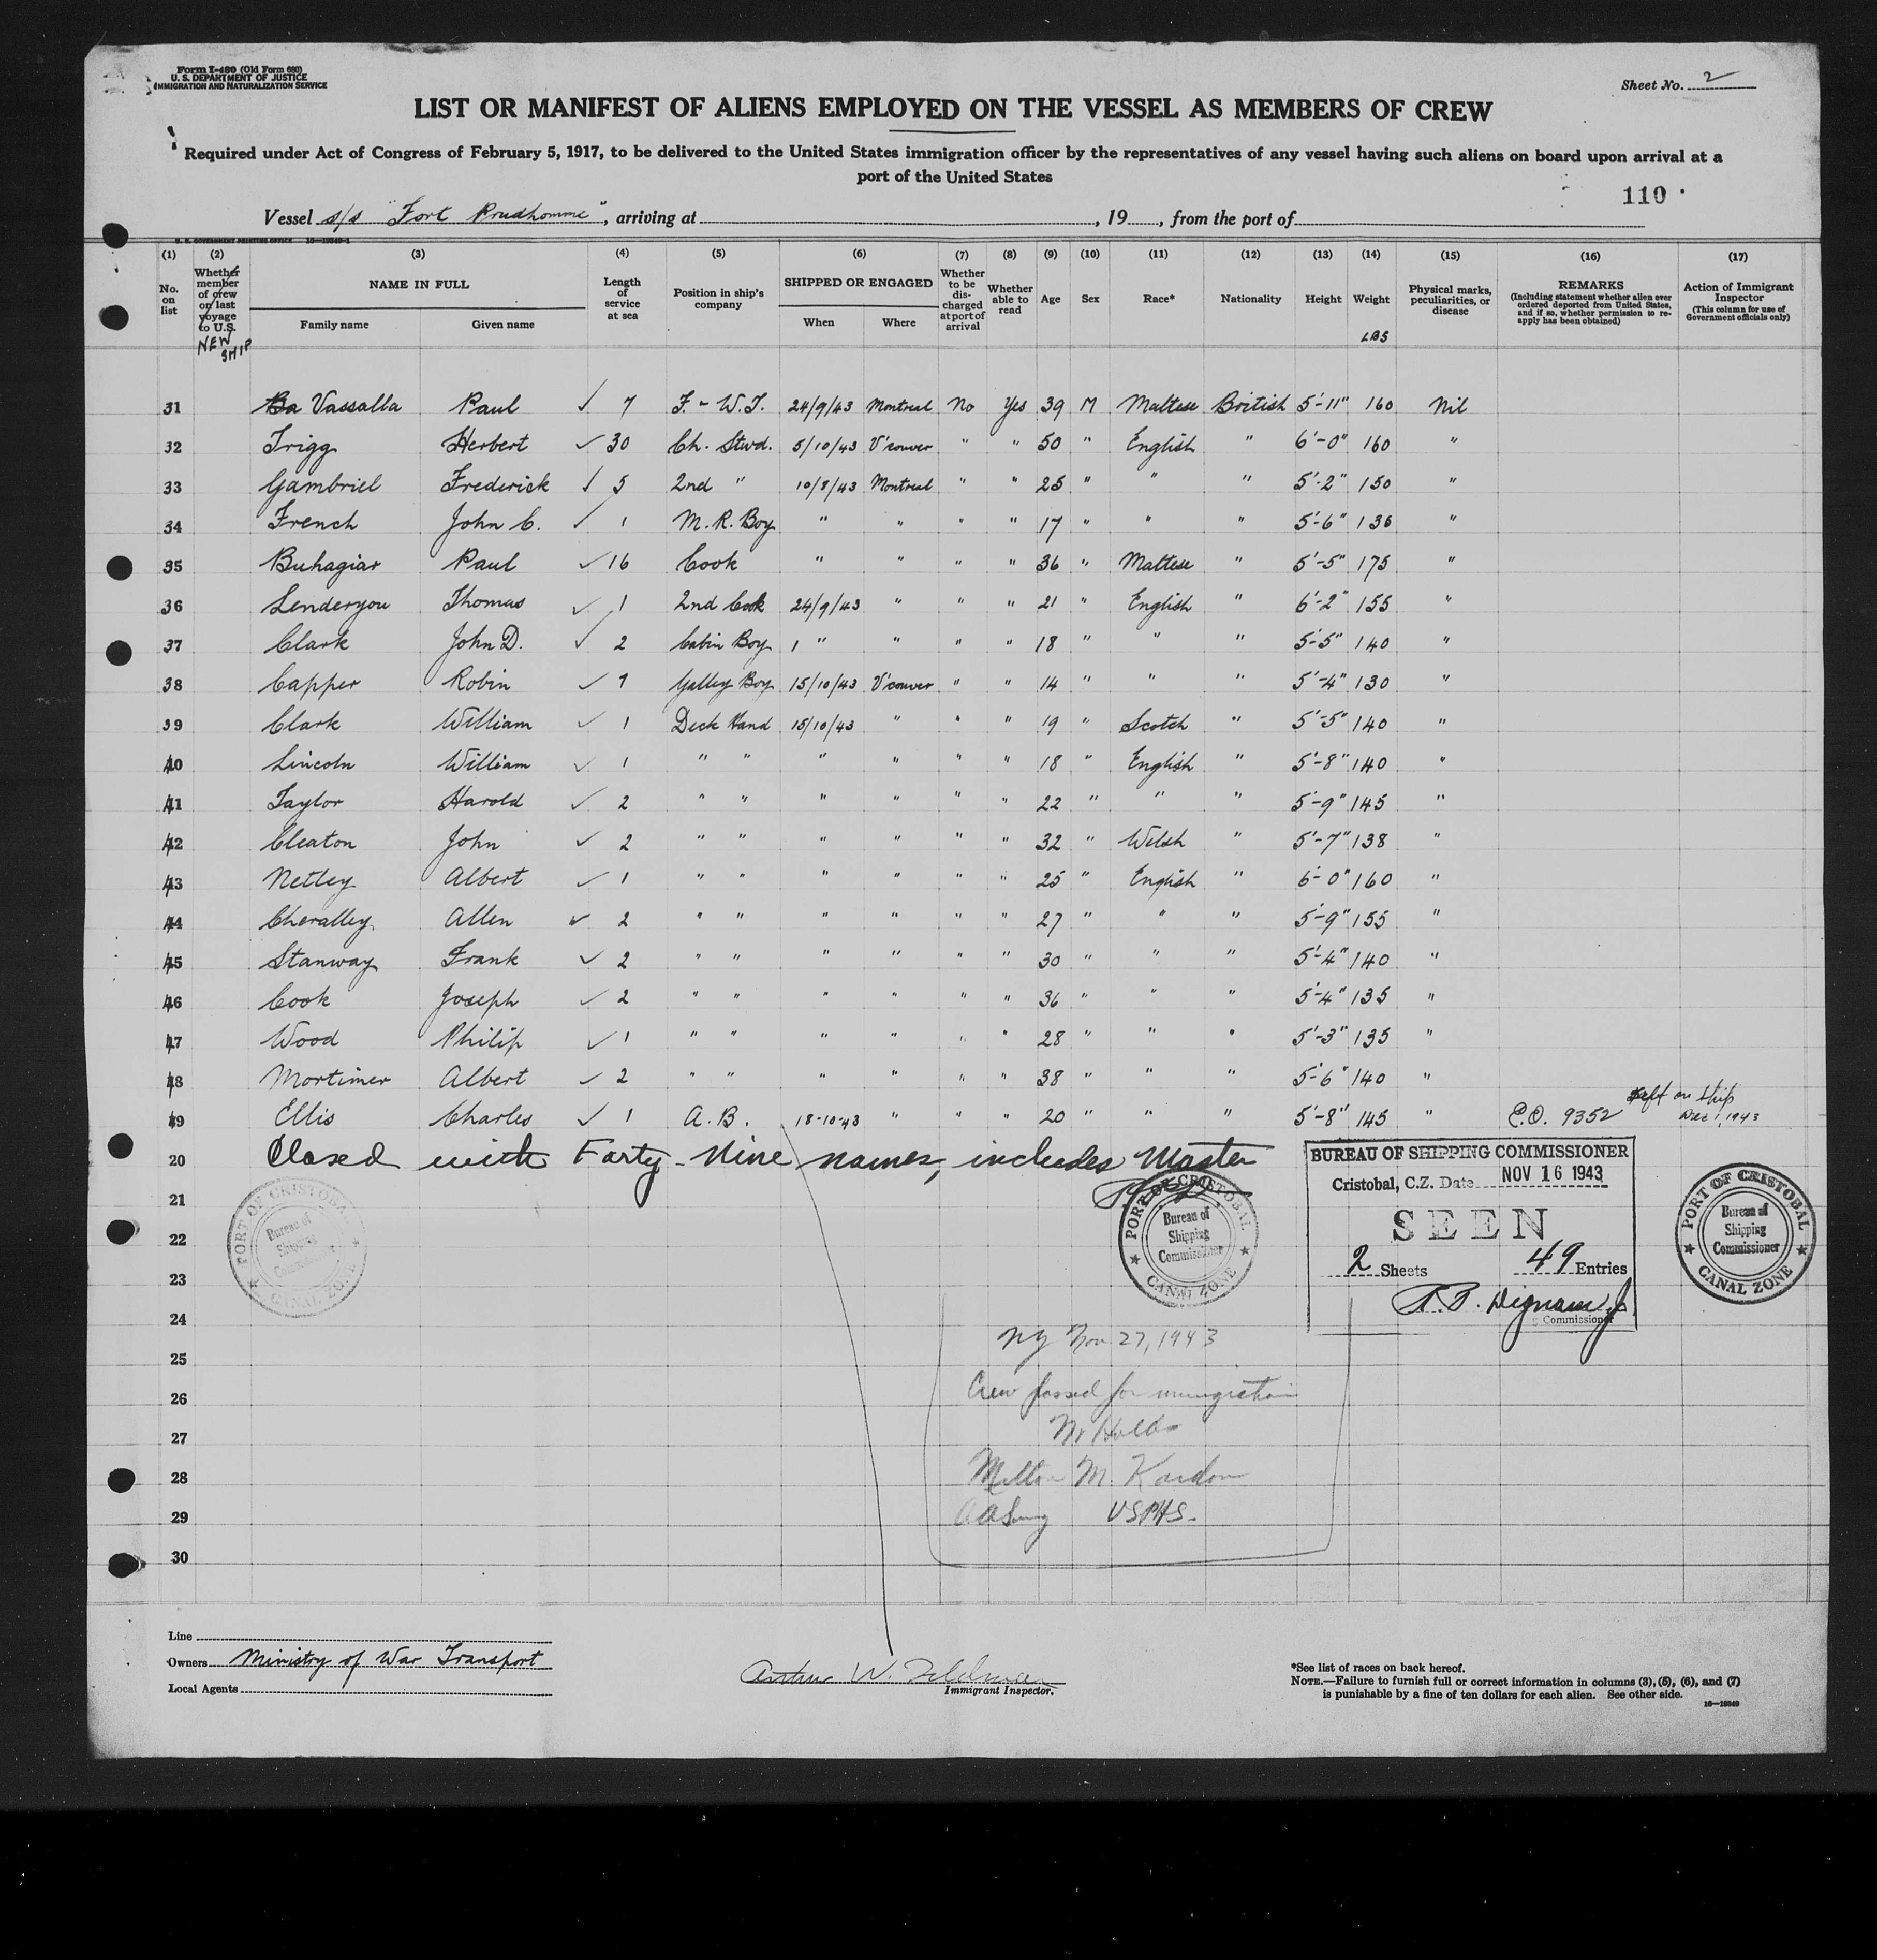 Form I-489 (Old Form 680)
U. S. DEPARTMENT OF JUSTICE
IMMIGRATION AND NATURALIZATION SERVICE
Sheet No. 2
LIST OR MANIFEST OF ALIENS EMPLOYED ON THE VESSEL AS MEMBERS OF CREW
Required under Act of Congress of February 5, 1917, to be delivered to the United States immigration officer by the representatives of any vessel having such aliens on board upon arrival at a
port of the United States
110
Vessel s/s "Fort Prudhomme", arriving at , 19 , from the port of
U. S. GOVERNMENT PRINTING OFFICE
(1) (2) (3) (4) (5) (6) (7) (8) (9) (10) (11) (12) (13) (14) (15) (16) (17)
No. on list
Whether member of crew on last voyage to U.S.
NEW SHIP
NAME IN FULL
Family name Given name
Length of service at sea
Position in ship's company
SHIPPED OR ENGAGED
When Where
Whether to be discharged at port of arrival
Whether able to read
Age
Sex
Race*
Nationality
Height
Weight
LBS
Physical marks, peculiarities, or disease
REMARKS
(Including statement whether alien ever ordered deported from United States, and if so, whether permission to reapply has been obtained)
Action of Immigrant Inspector
(This column for use of Government officials only)
31 Vassalla Paul ✓ 7 F. - W.T. 24/9/43 Montreal No Yes 39 M Maltese British 5'-11" 160 Nil
32 Trigg Herbert ✓ 30 Ch. Stwd. 5/10/43 V'couver " " 50 " English " 6'-0" 160 "
33 Gambriel Frederick ✓ 5 2nd " 10/8/43 Montreal " " 25 " " " 5'-2" 150 "
34 French John C. ✓ 1 M. R. Boy " " " " 17 " " " 5'-6" 136 "
35 Buhagiar Paul ✓ 16 Cook " " " " 36 " Maltese " 5'-5" 175 "
36 Lenderyou Thomas ✓ 1 2nd Cook 24/9/43 " " " 21 " English " 6'-2" 155 "
37 Clark John D. ✓ 2 Cabin Boy 1 " " " " 18 " " " 5'-5" 140 "
38 Capper Robin ✓ 1 Galley Boy 15/10/43 V'couver " " 14 " " " 5'-4" 130 "
39 Clark William ✓ 1 Deck Hand 15/10/43 " " " 19 " Scotch " 5'-5" 140 "
40 Lincoln William ✓ 1 " " " " " " 18 " English " 5'-8" 140 "
41 Taylor Harold ✓ 2 " " " " " " 22 " " " 5'-9" 145 "
42 Cleaton John ✓ 2 " " " " " " 32 " Welsh " 5'-7" 138 "
43 Netley Albert ✓ 1 " " " " " " 25 " English " 6'-0" 160 "
44 Cheralley Allen ✓ 2 " " " " " " 27 " " " 5'-9" 155 "
45 Stanway Frank ✓ 2 " " " " " " 30 " " " 5'-4" 140 "
46 Cook Joseph ✓ 2 " " " " " " 36 " " " 5'-4" 135 "
47 Wood Philip ✓ 1 " " " " " " 28 " " " 5'-3" 135 "
48 Mortimer Albert ✓ 2 " " " " " " 38 " " " 5'-6" 140 "
49 Ellis Charles ✓ 1 A. B. 18-10-43 " " " 20 " " " 5'-8" 145 " E.O. 9352 Left on ship Dec 1, 1943
20 Closed with Forty-Nine names, includes Master
21
22
23
24
25
26
27
28
29
30
PORT OF CRISTOBAL
Bureau of
Shipping
Commissioner
CANAL ZONE
PORT OF CRISTOBAL
Bureau of
Shipping
Commissioner
CANAL ZONE
BUREAU OF SHIPPING COMMISSIONER
Cristobal, C.Z. Date NOV 16 1943
SEEN
2 Sheets 49 Entries
Commissioner
PORT OF CRISTOBAL
Bureau of
Shipping
Commissioner
CANAL ZONE
NY Nov 27, 1943
Crew passed for immigration
Milton M. Kardon
USPHS
Line
Owners Ministry of War Transport
Local Agents
Arthur W.
Immigrant Inspector.
*See list of races on back hereof.
NOTE.—Failure to furnish full or correct information in columns (3), (5), (6), and (7)
is punishable by a fine of ten dollars for each alien. See other side.